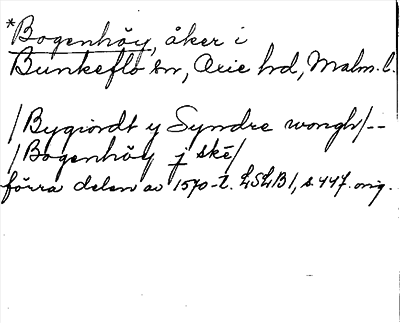 *Bogenhöy, åker i
Bunkeflo sn, Oxie hd, Malm. l.
/Bygiordt y Syndre wongh/--
/Bogenhöy j skē/
förra delen av 1570-t. LSLB1, s. 447. orig.